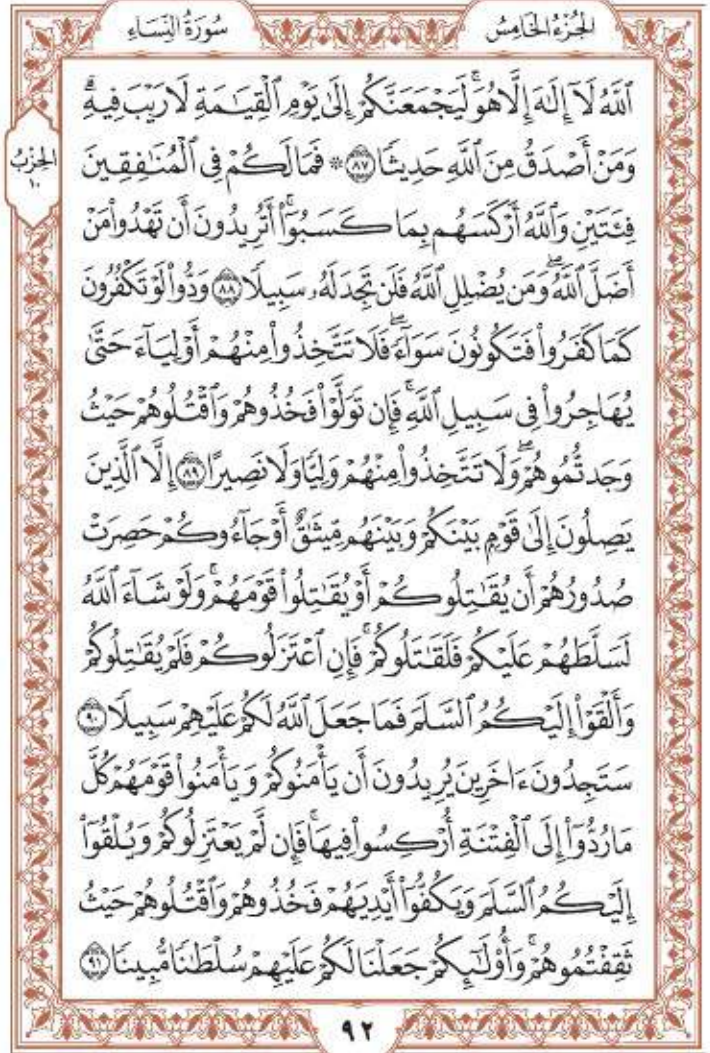 الجُزْءُ الخَامِسُ
سُورَةُ النِّسَاءِ
ٱللَّهُ لَآ إِلَٰهَ إِلَّا هُوَۚ لَيَجْمَعَنَّكُمْ إِلَىٰ يَوْمِ ٱلْقِيَٰمَةِ لَا رَيْبَ فِيهِۗ
وَمَنْ أَصْدَقُ مِنَ ٱللَّهِ حَدِيثًا ٨٧ ۞ فَمَا لَكُمْ فِى ٱلْمُنَٰفِقِينَ
الحِزْبُ
١٠
فِئَتَيْنِ وَٱللَّهُ أَرْكَسَهُم بِمَا كَسَبُوٓا۟ۚ أَتُرِيدُونَ أَن تَهْدُوا۟ مَنْ
أَضَلَّ ٱللَّهُۖ وَمَن يُضْلِلِ ٱللَّهُ فَلَن تَجِدَ لَهُۥ سَبِيلًا ٨٨ وَدُّوا۟ لَوْ تَكْفُرُونَ
كَمَا كَفَرُوا۟ فَتَكُونُونَ سَوَآءًۖ فَلَا تَتَّخِذُوا۟ مِنْهُمْ أَوْلِيَآءَ حَتَّىٰ
يُهَاجِرُوا۟ فِى سَبِيلِ ٱللَّهِۚ فَإِن تَوَلَّوْا۟ فَخُذُوهُمْ وَٱقْتُلُوهُمْ حَيْثُ
وَجَدتُّمُوهُمْۖ وَلَا تَتَّخِذُوا۟ مِنْهُمْ وَلِيًّا وَلَا نَصِيرًا ٨٩ إِلَّا ٱلَّذِينَ
يَصِلُونَ إِلَىٰ قَوْمٍۭ بَيْنَكُمْ وَبَيْنَهُم مِّيثَٰقٌ أَوْ جَآءُوكُمْ حَصِرَتْ
صُدُورُهُمْ أَن يُقَٰتِلُوكُمْ أَوْ يُقَٰتِلُوا۟ قَوْمَهُمْۚ وَلَوْ شَآءَ ٱللَّهُ
لَسَلَّطَهُمْ عَلَيْكُمْ فَلَقَٰتَلُوكُمْۚ فَإِنِ ٱعْتَزَلُوكُمْ فَلَمْ يُقَٰتِلُوكُمْ
وَأَلْقَوْا۟ إِلَيْكُمُ ٱلسَّلَمَ فَمَا جَعَلَ ٱللَّهُ لَكُمْ عَلَيْهِمْ سَبِيلًا ٩٠
سَتَجِدُونَ ءَاخَرِينَ يُرِيدُونَ أَن يَأْمَنُوكُمْ وَيَأْمَنُوا۟ قَوْمَهُمْ كُلَّ
مَا رُدُّوٓا۟ إِلَى ٱلْفِتْنَةِ أُرْكِسُوا۟ فِيهَاۚ فَإِن لَّمْ يَعْتَزِلُوكُمْ وَيُلْقُوٓا۟
إِلَيْكُمُ ٱلسَّلَمَ وَيَكُفُّوٓا۟ أَيْدِيَهُمْ فَخُذُوهُمْ وَٱقْتُلُوهُمْ حَيْثُ
ثَقِفْتُمُوهُمْۚ وَأُو۟لَٰٓئِكُمْ جَعَلْنَا لَكُمْ عَلَيْهِمْ سُلْطَٰنًا مُّبِينًا ٩١
٩٢